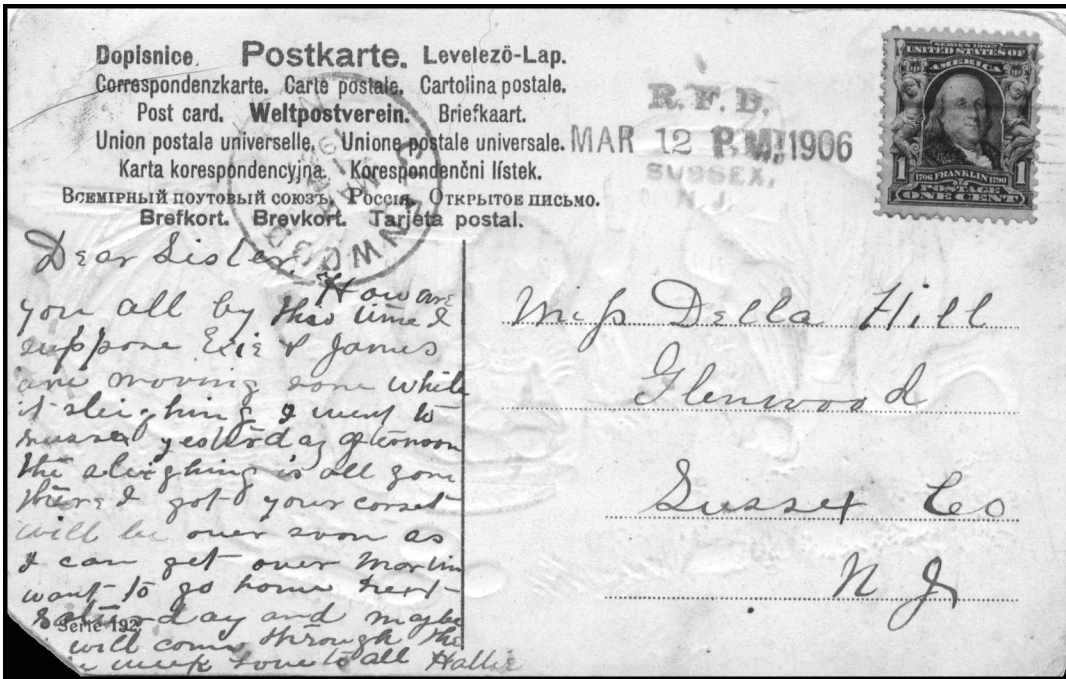 Dopisnice. Postkarte. Levelezö-Lap.
Correspondenzkarte. Carte postale. Cartolina postale.
Post card. Weltpostverein. Briefkaart.
Union postale universelle. Unione postale universale.
Karta korespondencyjna. Korespondenční lístek.
Всемірный поутовый союзъ. Россія. Открытое письмо.
Brefkort. Brevkort. Tarjeta postal.
R.F.D.
MAR 12 P.M. 1906
SUSSEX,
N.J.
SERIES 1902
UNITED STATES OF
AMERICA
1706 FRANKLIN 1790
1 1
POSTAGE
ONE CENT
Dear Sister How are
you all by this time I
suppose Exie & James
are moving some while
it sleighing I went to
sussex yesterday afternoon
the sleighing is all gone
there I got your corset
will be over soon as
I can get over Martin
want to go home next
saturday and maybe
will come through the
week love to all Hallie
Serie 192
Miss Della Hill
Glenwood
Sussex Co
N J